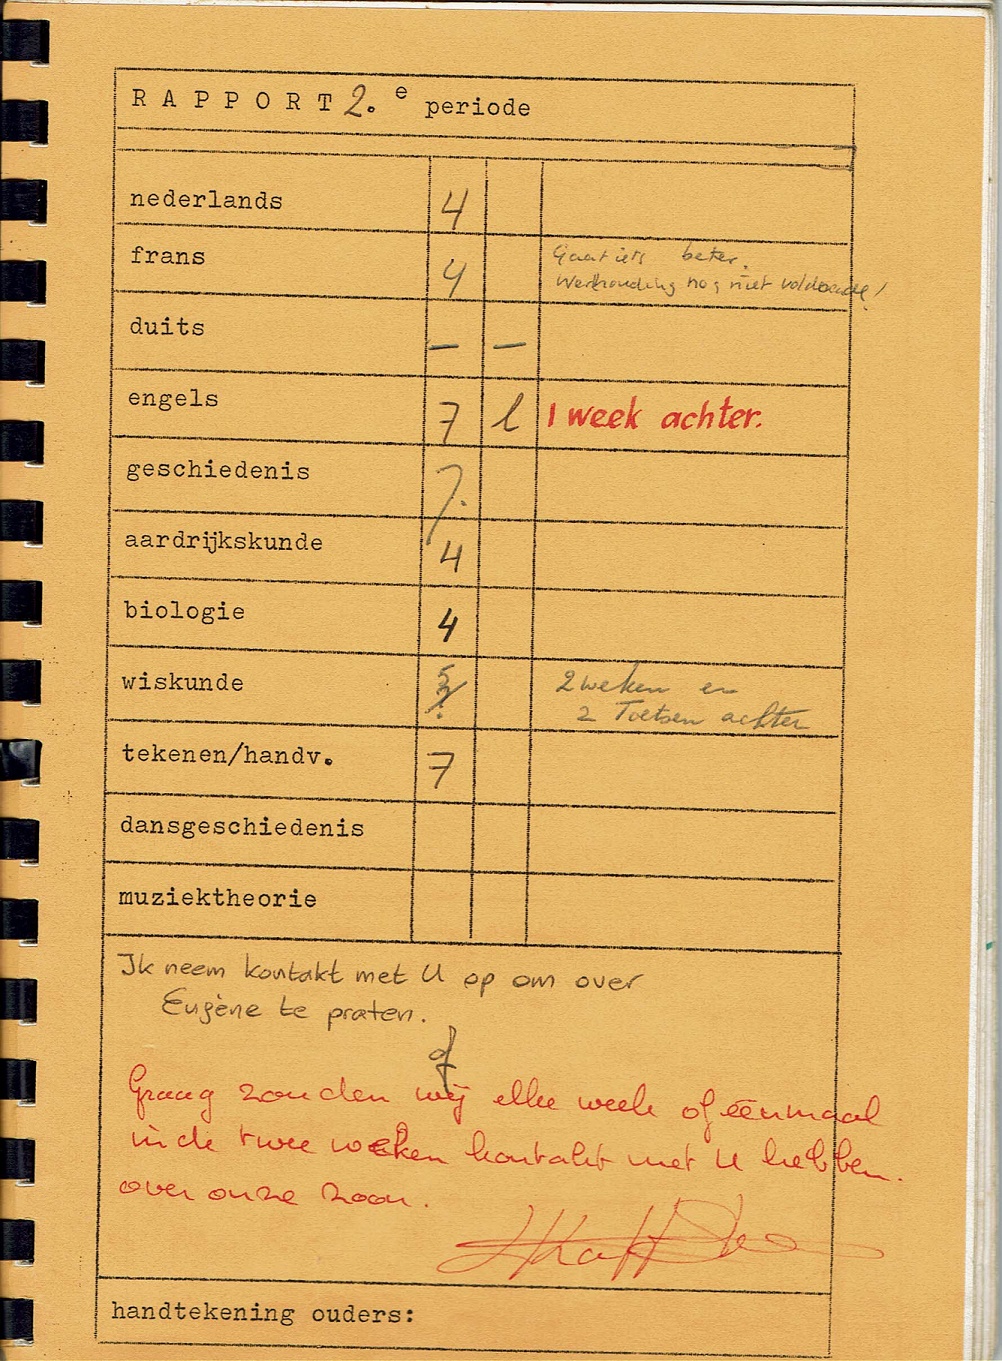 RAPPORT 2. e periode
nederlands 4
frans 4 Gaat iets beter.
Werkhouding nog niet voldoende!
duits — —
engels 7 l 1 week achter.
geschiedenis 7.
aardrijkskunde 4
biologie 4
wiskunde 2 weken en
2 Toetsen achter
tekenen/handv. 7
dansgeschiedenis
muziektheorie
Ik neem kontakt met U op om over
Eugène te praten.
of
Graag zouden wij elke week of éénmaal
in de twee weken kontakt met U hebben.
over onze zoon.
handtekening ouders: